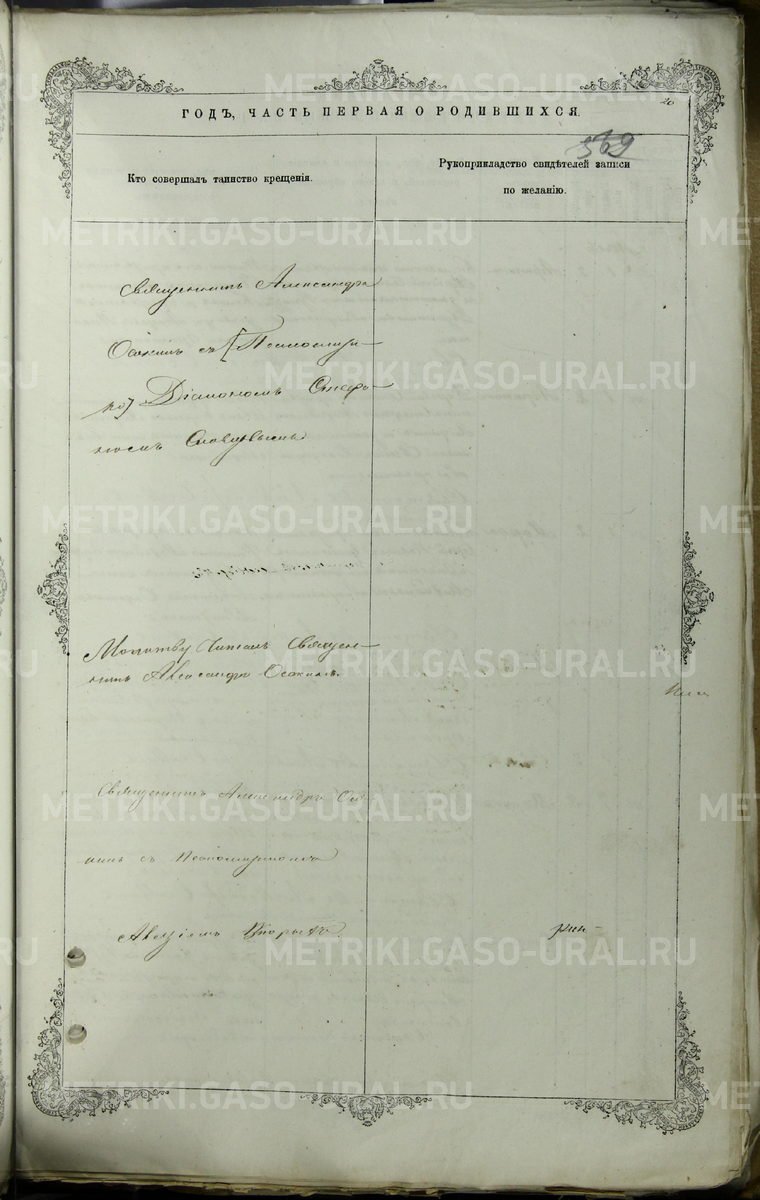 20
ГОДЪ, ЧАСТЬ ПЕРВАЯ О РОДИВШИХСЯ.
569
Кто совершалъ таинство крещенія.
Рукоприкладство свидѣтелей записи
по желанію.
Священникъ Александръ
Осокинъ съ
Діакономъ Стефа-
номъ
Молитву читалъ Священ-
никъ Александръ Осокинъ.
Священникъ Александръ Осо-
кинъ съ Псаломщикомъ
METRIKI.GASO-URAL.RU